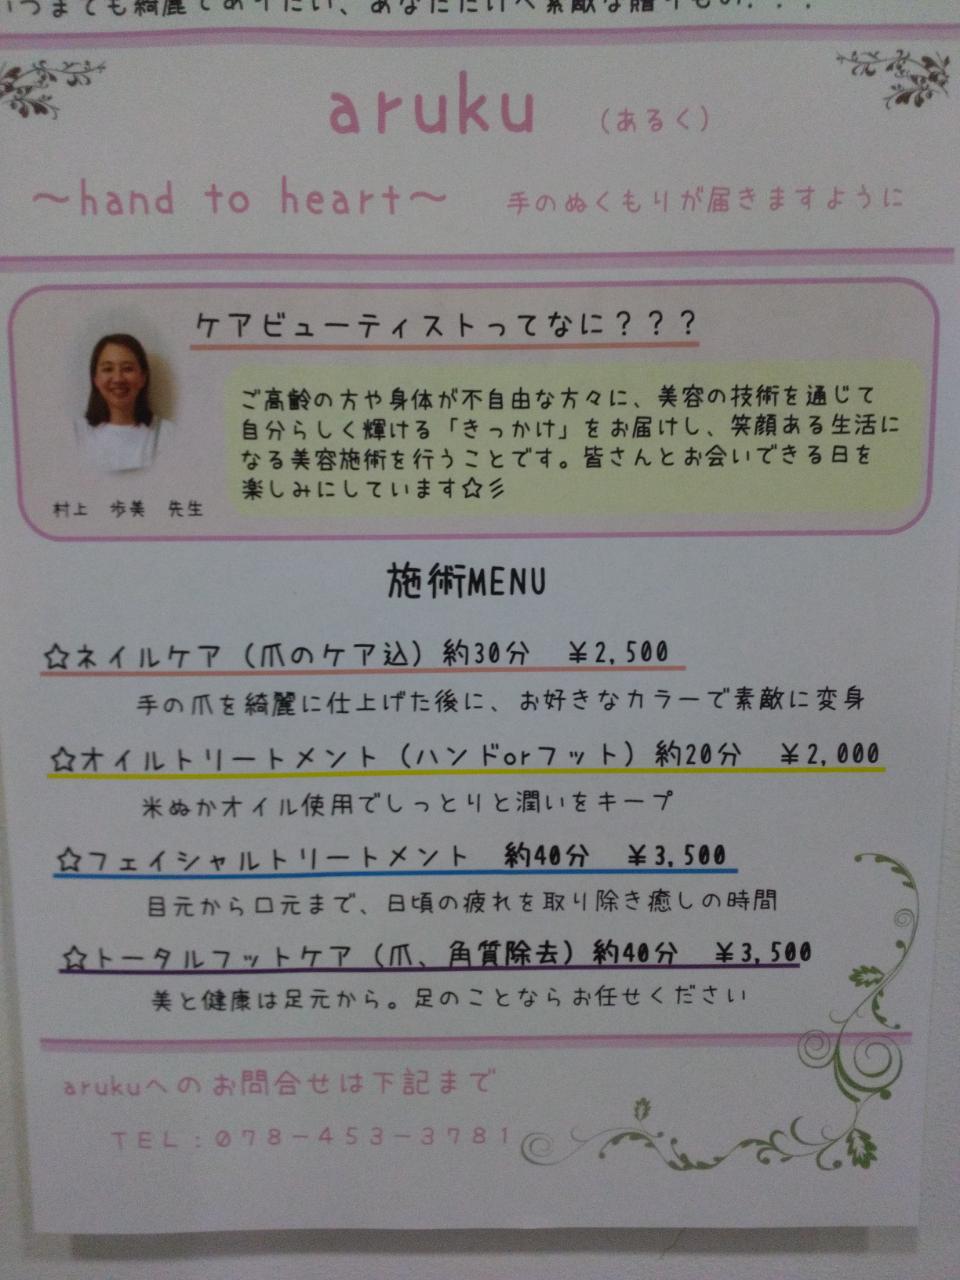 いつまでも綺麗でありたい、あなただけへ素敵な贈りもの・・・
aruku (あるく)
～hand to heart～ 手のぬくもりが届きますように
ケアビューティストってなに？？？
ご高齢の方や身体が不自由な方々に、美容の技術を通じて
自分らしく輝ける「きっかけ」をお届けし、笑顔ある生活に
なる美容施術を行うことです。皆さんとお会いできる日を
楽しみにしています☆彡
村上 歩美 先生
施術MENU
☆ネイルケア（爪のケア込）約30分 ￥2,500
手の爪を綺麗に仕上げた後に、お好きなカラーで素敵に変身
☆オイルトリートメント（ハンドorフット）約20分 ￥2,000
米ぬかオイル使用でしっとりと潤いをキープ
☆フェイシャルトリートメント 約40分 ￥3,500
目元から口元まで、日頃の疲れを取り除き癒しの時間
☆トータルフットケア（爪、角質除去）約40分 ￥3,500
美と健康は足元から。足のことならお任せください
arukuへのお問合せは下記まで
ＴＥＬ：０７８－４５３－３７８１